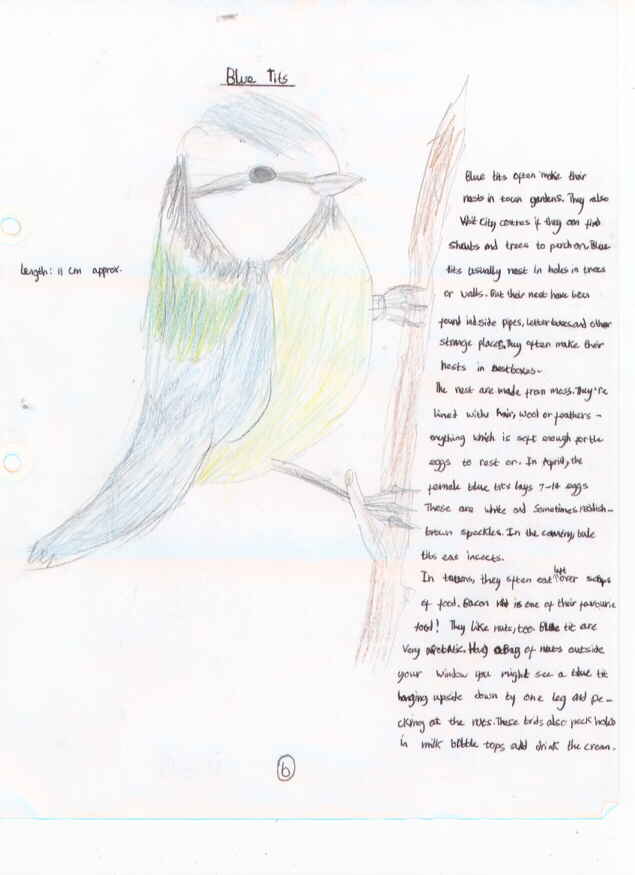 Blue Tits
Length: 11 cm approx.
Blue tits often make their
nests in town gardens. They also
Visit City centres if they can find
shrubs and trees to perch on. Blue
tits usually nest in holes in trees
or walls. But their nest have been
found inside pipes, letter boxes and other
strange places. They often make their
nests in nestboxes.
The nest are made from moss. They're
lined with hair, wool or feathers -
anything which is soft enough for the
eggs to rest on. In April, the
female blue tits lays 7-14 eggs
These are white and sometimes reddish-
brown speckles. In the country, blue
tits eat insects.
In towns, they often eat left over scraps
of food. Bacon rind is one of their favourite
food! They like nuts, too. Blue tit are
Very acrobatic. Hang a Bag of nuts outside
your window you might see a blue tit
hanging upside down by one leg and pe-
cking at the nuts. These birds also peck holes
in milk bottle tops and drink the cream.
6